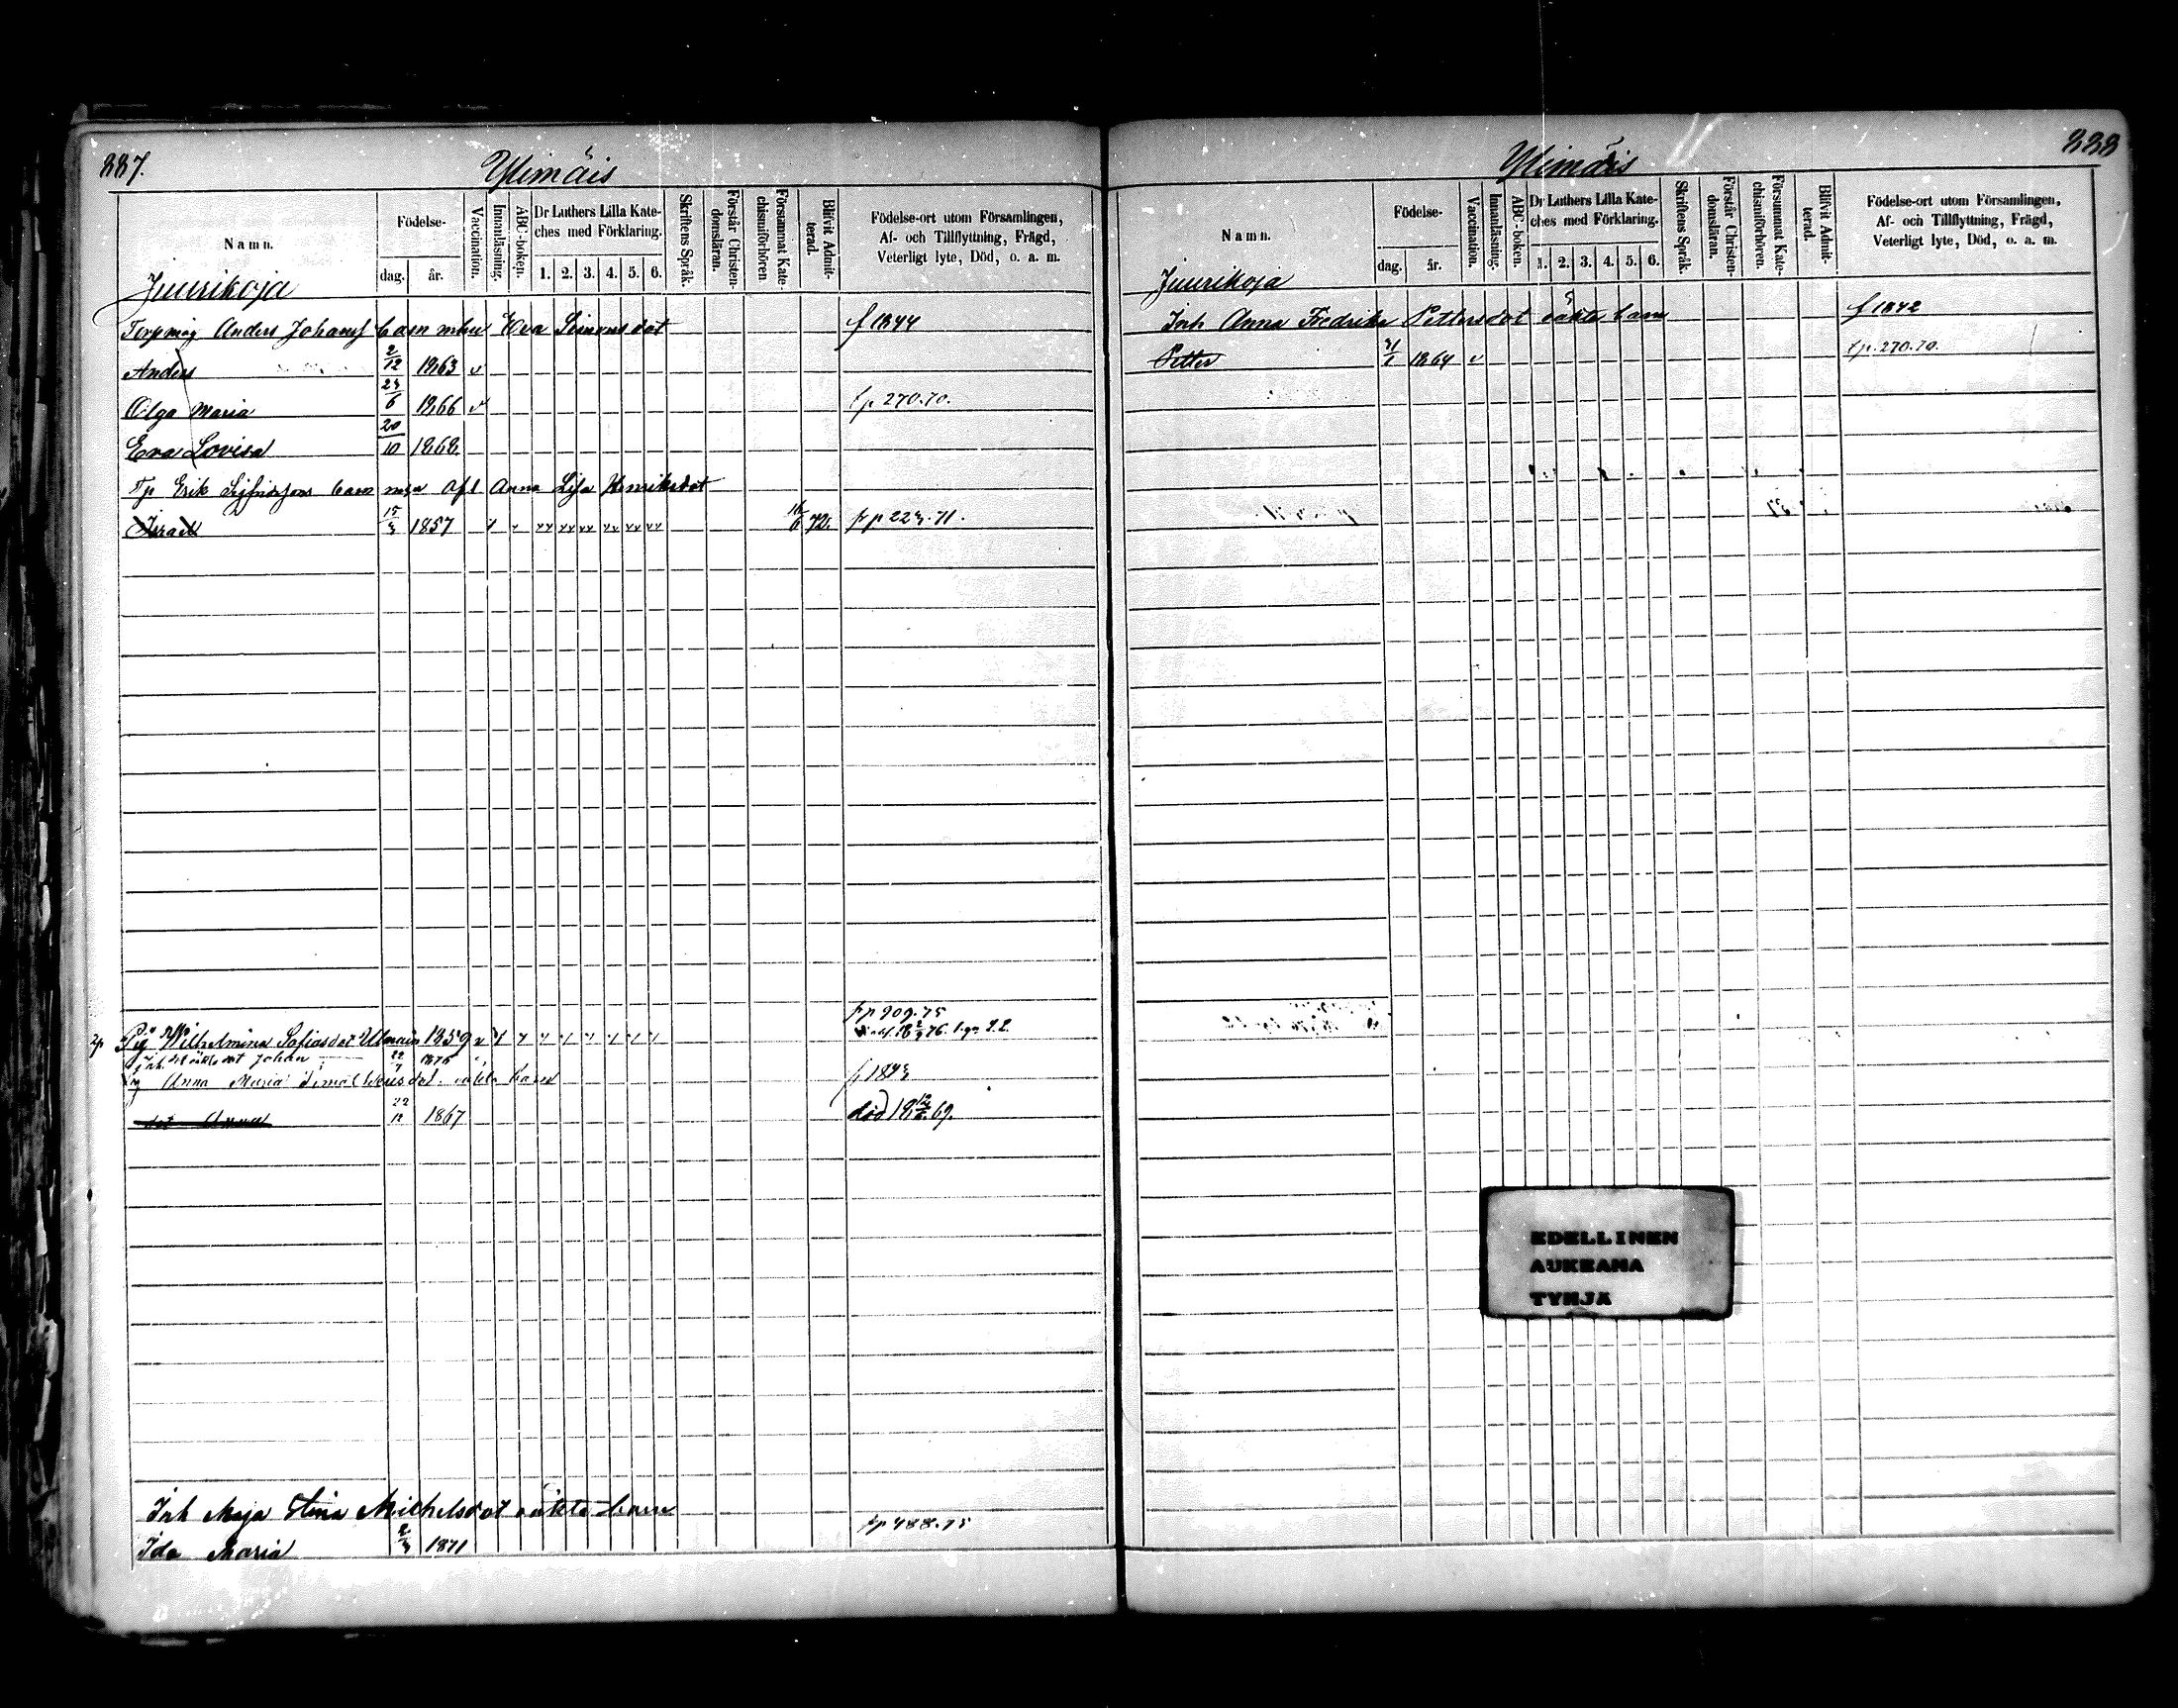 887.
Ylimäis
Namn.
Födelse-
dag.
år.
Vaccination.
Innanläsning.
ABC-boken.
Dr Luthers Lilla Kate-
ches med Förklaring.
1. 2. 3. 4. 5. 6.
Skriftens Språk.
Förstår Christen-
domsläran.
Försummat Kate-
chismiförhören
Blifvit Admit-
terad.
Födelse-ort utom Församlingen,
Af- och Tillflyttning, Frägd,
Veterligt lyte, Död, o. a. m.
Juurikoja
Anders Johans barn Eva Simonsdot f 1844
Anders 2/12 1863 v
Olga Maria 6 1866 v fp 270.70.
Eva Lovisa 20/10 1868
Tp Erik Sigfridsons barn Anna Lisa Henriksdot
Israel 15 1857 72.
Wilhelmina Sofiasdot 1859 fp 909.75
Johan 22 1876
Anna Maria oäkta barn
22/12 1867 död 69.
Inh Maja Stina Michelsdot oäkta barn
Ida Maria 1871 fp 488.75
888
Ylimäis
Namn.
Födelse-
dag.
år.
Vaccination.
Innanläsning.
ABC-boken.
Dr Luthers Lilla Kate-
ches med Förklaring.
1. 2. 3. 4. 5. 6.
Skriftens Språk.
Förstår Christen-
domsläran.
Försummat Kate-
chismiförhören.
Blifvit Admit-
terad.
Födelse-ort utom Församlingen,
Af- och Tillflyttning, Frägd,
Veterligt lyte, Död, o. a. m.
Juurikoja
Inh Anna Fredrika Pettersdot oäkta barn f 1842
Petter 1864 v fp. 270.70.
EDELLINEN
AUKEAMA
TYHJÄ